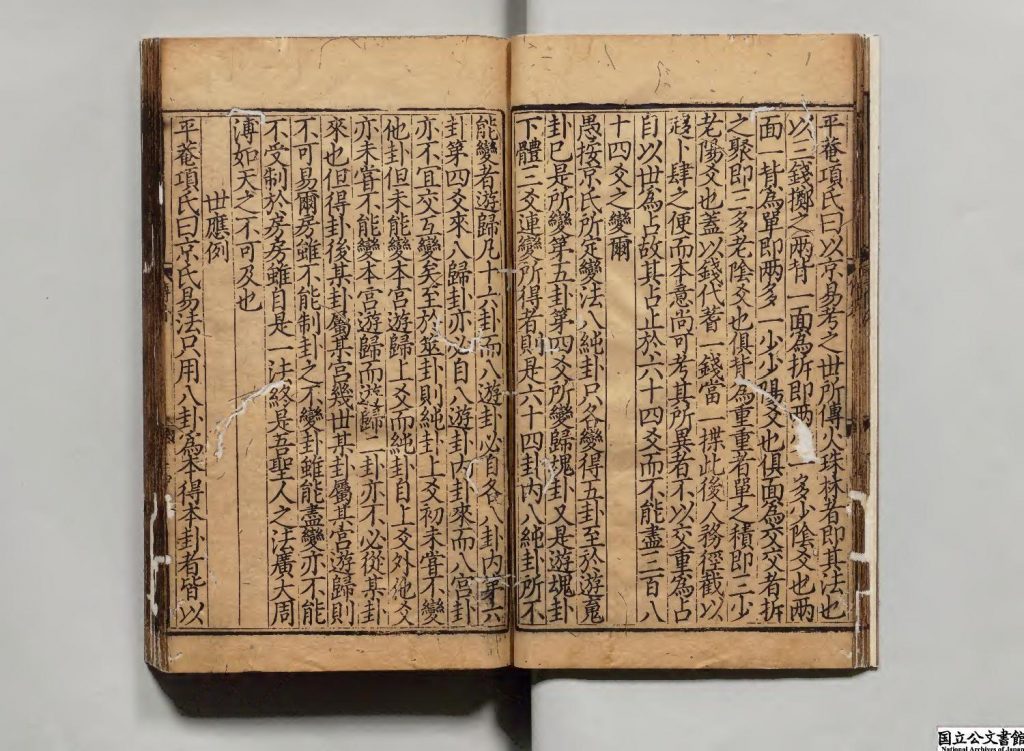 平菴項氏曰以京易考之世所傳火珠林者即其法也
以三錢擲之兩背一面為拆即兩少一多少陰爻也兩
面一背為單即兩多一少少陽爻也俱面為交交者拆
之聚即三多老陰爻也俱背為重重者單之積即三少
老陽爻也蓋以錢代蓍一錢當一揲此後人務徑截以
趍卜肆之便而本意尚可考其所異者不以交重為占
自以世為占故其占止於六十四爻而不能盡三百八
十四爻之變爾
愚按京氏所定變法八純卦只各變得五卦至於遊䰟
卦已是所變第五卦第四爻所變歸䰟卦又是遊䰟卦
下體三爻連變所得者則是六十四卦内八純卦所不
能變者遊歸凡十六卦而八遊卦必自各八卦内第六
卦第四爻來八歸卦亦必自八遊卦内卦來而八宮卦
亦不宜交互變矣至於筮卦則純卦上爻初未嘗不變
他卦但未能變本宮遊歸上爻而純卦自上爻外他爻
亦未嘗不能變本宮遊歸而遊歸二卦亦不必從某卦
來也但得卦後某卦屬某宮幾世某卦屬某宮遊歸則
不可易爾房雖不能制卦之不變卦雖能盡變亦不能
不受制於房房雖自是一法終是吾聖人之法廣大周
溥如天之不可及也
世應例
平菴項氏曰京氏易法只用八卦為本得本卦者皆以
国立公文書館
National Archives of Japan